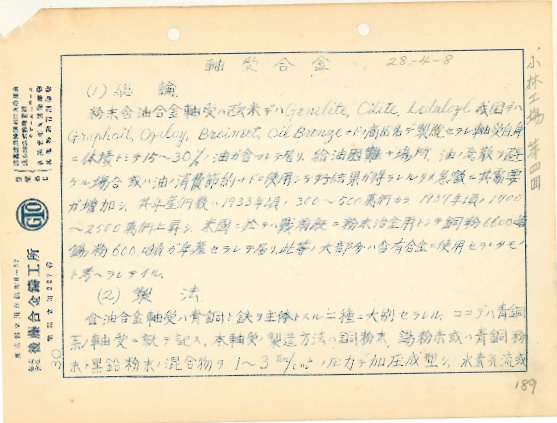 軸受合金
28-4-8
小林工場 第四回
(1) 総論
粉末含油合金軸受ハ欧米デハ Genelite, Oilite, Ledaloyl 我国デハ
Graphoil, Ogaloy, Braimet, Oil Bronze 商品名デ製産セラレ軸受自身
ニ体積トシテ15〜30%ノ油ガ含マレテ居リ、給油困難ナ場所、油ノ飛散ヲ
ケル場合或ハ油ノ消費節約ナドニ使用シテ好結果ガ得ラレルタメ急激ニ其需要
ガ増加シ、其年産個数ハ1933年頃ノ300〜500萬個カラ1937年頃ノ1900
〜2500萬個ニ上昇シ、米国ニ於テハ戦前既ニ粉末冶金用トシテ銅粉6600
錫粉600噸ガ年産セラレテ居リ、此等ノ大部分ハ含有合金ニ使用セラレタモノ
ト考ヘラレテイル。
(2) 製法
含油合金軸受ハ青銅ト鉄ヲ主体トスル二種ニ大別セラレル。コヽデハ青銅
系ノ軸受ニ就テ記ス、本軸受ノ製造方法ハ銅粉末、錫粉末或ハ青銅粉
末ト黒鉛粉末ノ混合物ヲ 1〜3 Ton/cm² ノ圧力デ加圧成型シ、水素気流或
GIO
後藤合金鑄工所
30
189